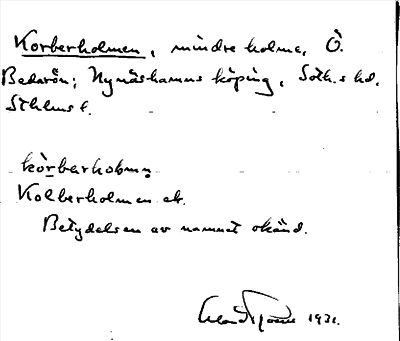 Korberholmen, mindre holme, Ö.
Bedarön; Nynäshamns köping, Soth.s hd.
Sthlms l.
kòrbarhobmn
Kolberholmen ek.
Betydelsen av namnet okänd.
1931.